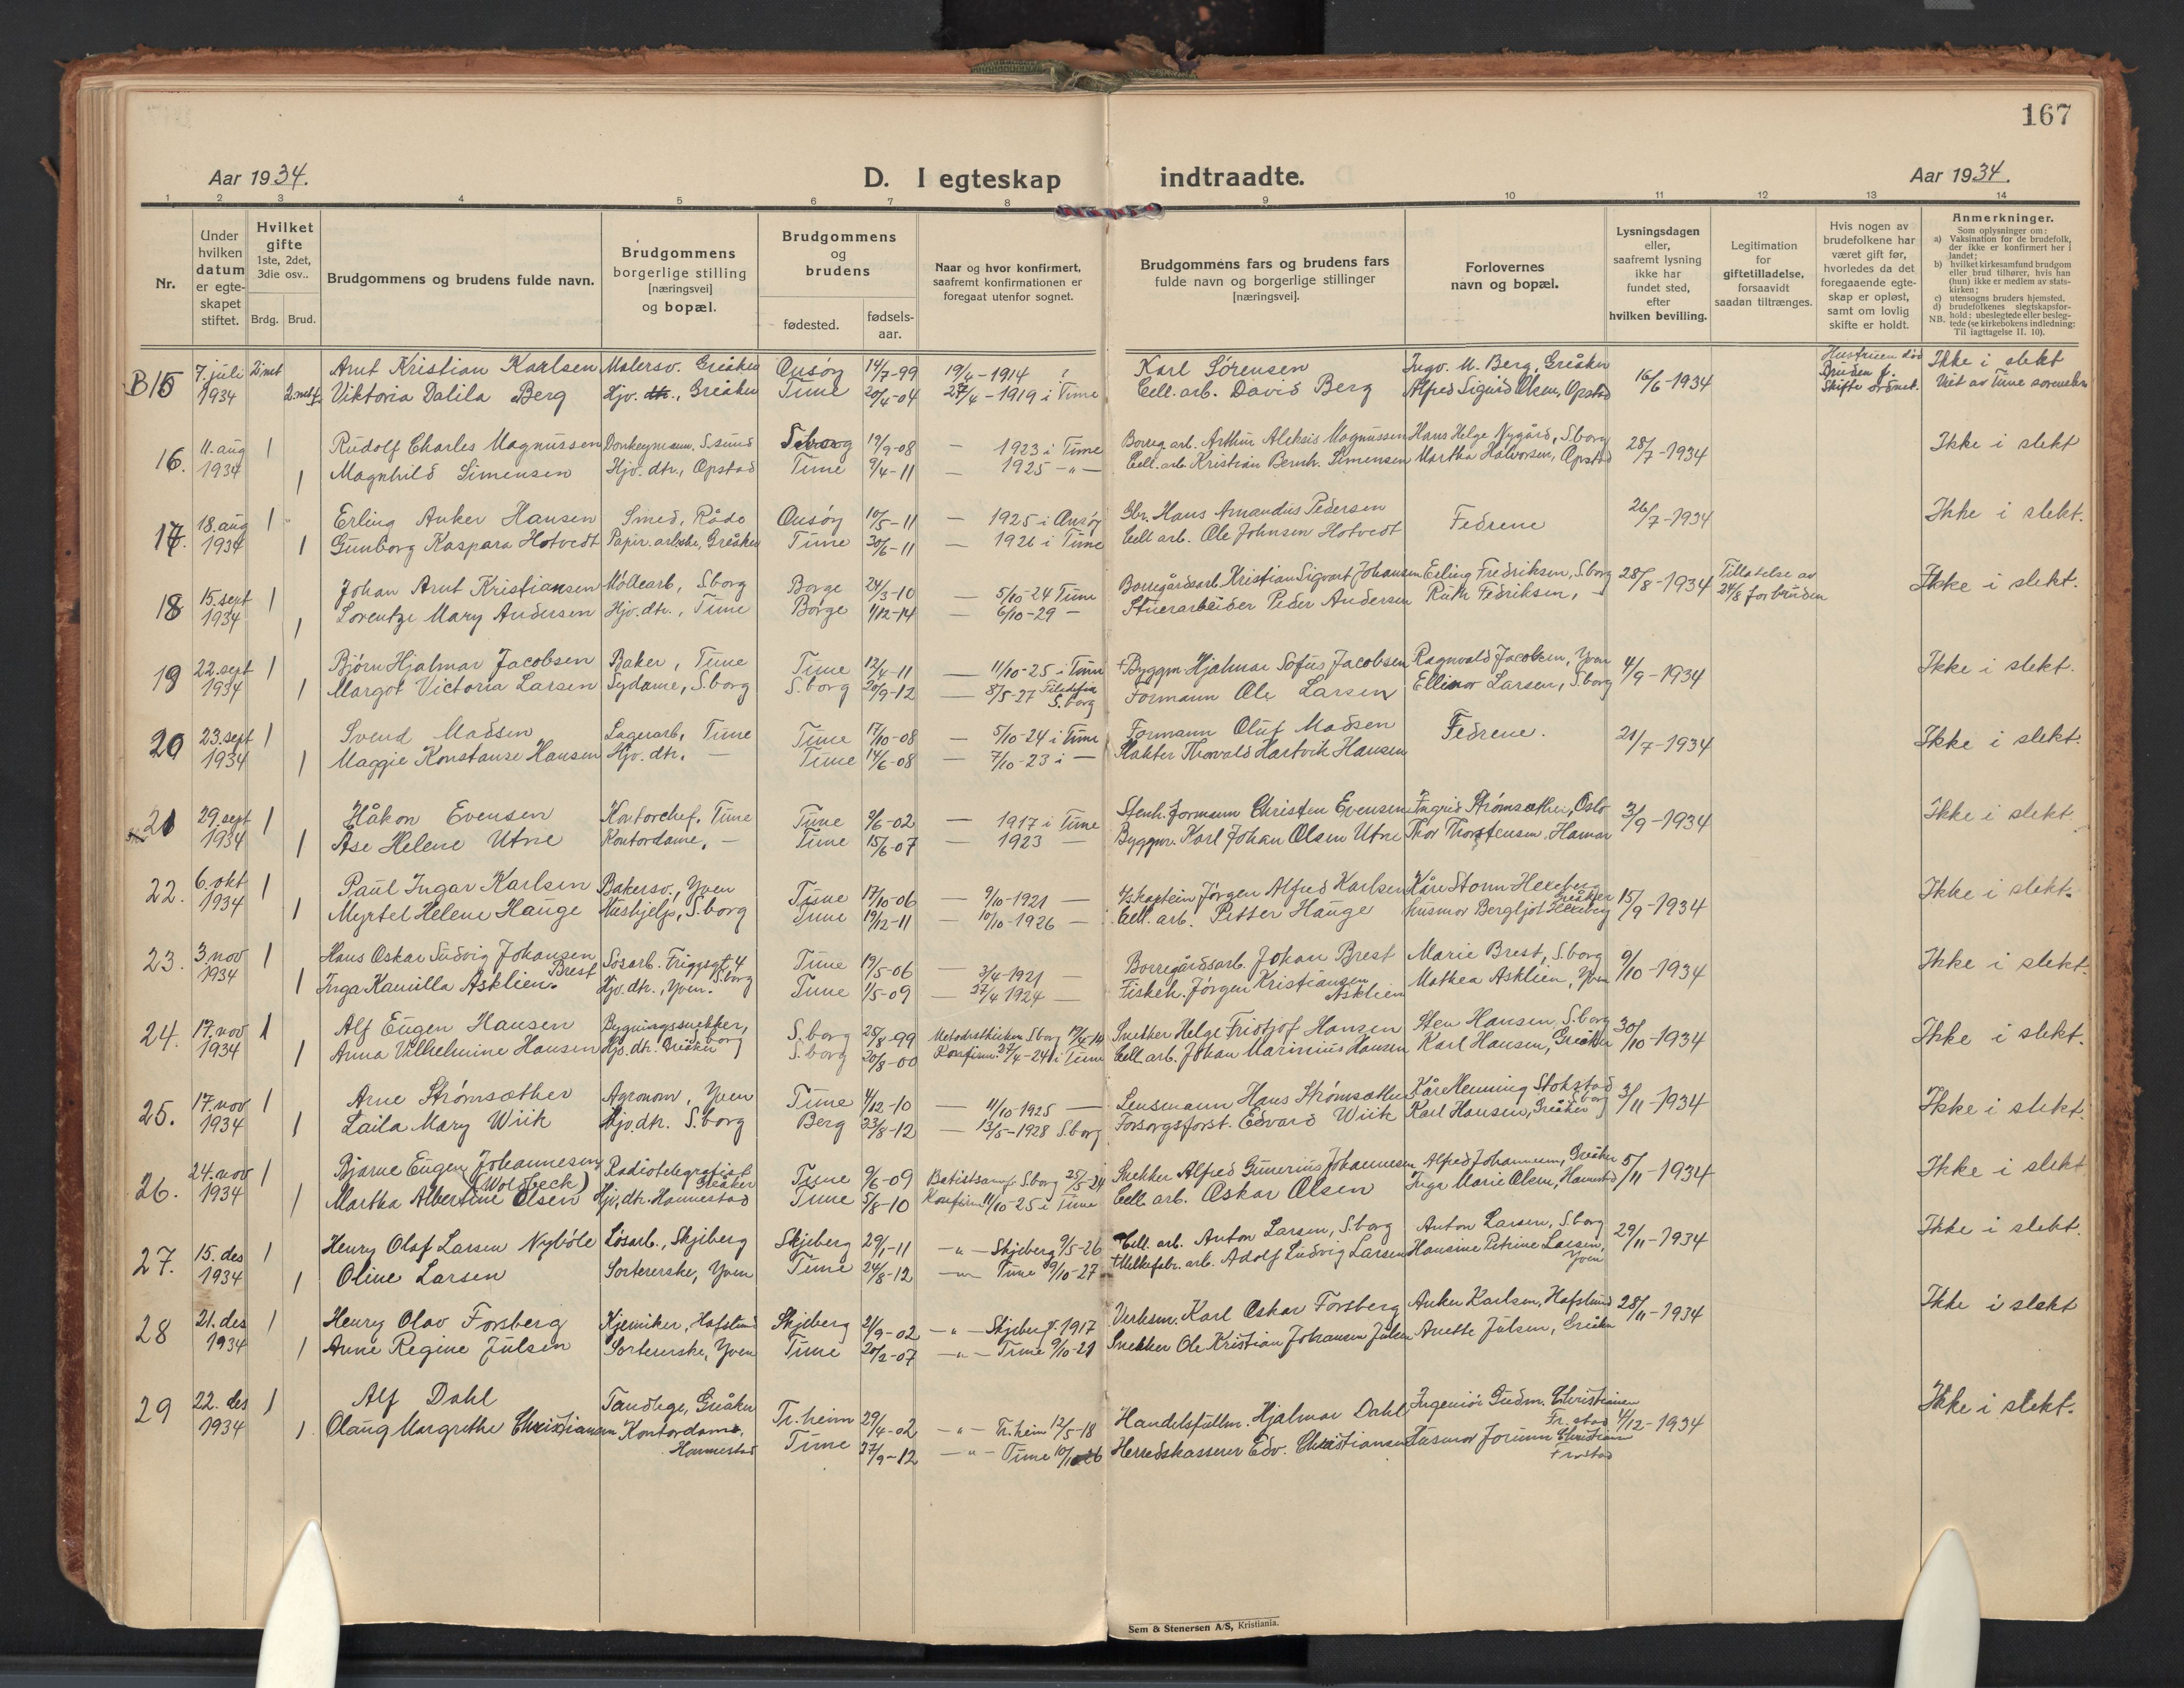 167
Aar 1934.
D. I egteskap indtraadte.
Aar 1934.
1 2 3 4 5 6 7 8 9 10 11 12 13 14
Nr.
Under hvilken datum er egte- skapet stiftet.
Hvilket gifte 1ste, 2det, 3die osv..
Brdg. Brud.
Brudgommens og brudens fulde navn.
Brudgommens borgerlige stilling [næringsvei] og bopæl.
Brudgommens og brudens
fødested. fødsels- aar.
Naar og hvor konfirmert, saafremt konfirmationen er foregaat utenfor sognet.
Brudgommens fars og brudens fars fulde navn og borgerlige stillinger [næringsvei].
Forlovernes navn og bopæl.
Lysningsdagen eller, saafremt lysning ikke har fundet sted, efter hvilken bevilling.
Legitimation for giftetilladelse, forsaavidt saadan tiltrænges.
Hvis nogen av brudefolkene har været gift før, hvorledes da det foregaaende egte- skap er opløst, samt om lovlig skifte er holdt.
Anmerkninger.
Som oplysninger om:
a) Vaksination for de brudefolk, der ikke er konfirmert her i landet;
b) hvilket kirkesamfund brudgom eller brud tilhører, hvis han (hun) ikke er medlem av stats- kirken;
c) utensogns bruders hjemsted.
d) brudefolkenes slegtskapsfor- hold: ubeslegtede eller besleg- tede (se kirkebokens indledning: NB. Til iagttagelse II. 10).
B15 7. juli 2. net Arnt Kristian Karlsen Malersv. Greåker Onsøy 14/7-99 19/4-1914 Karl Sørensen Ingv. M. Berg, Greåker 16/6-1934 Hustruen død Ikke i slekt
1934 Viktoria Dalila Berg Hjv. dtr., Greåker Tune 20/4-04 27/4-1919 i Tune Cell. arb. David Berg Alfred Sigurd Olsen, Opstad Bruden f. Viet av Tune sorenskr.
Skifte ordnet.
16. 11. aug 1 Rudolf Charles Magnussen Donkeymann. S.sund S.borg 19/9-08 — 1923 i Tune Borreg. arb. Arthur Aleksis Magnussen Hans Helge Nygård, S.borg 28/7-1934 Ikke i slekt
1934 1 Magnhild Simensen Hjv. dtr., Opstad Tune 9/4-11 — 1925 -"- Cell. arb. Kristian Bernh. Simensen Martha Halvorsen, Opstad
17. 18. aug 1 Erling Anker Hansen Smed, Råde Onsøy 10/5-11 — 1925 i Onsøy Gbr. Hans Amandus Pedersen Fedrene 26/7-1934 Ikke i slekt.
1934 1 Gunborg Kaspara Hotvedt Papir. arbeider, Greåker Tune 30/6-11 — 1926 i Tune Cell arb. Ole Johnsen Hotvedt
18 15. sept 1 Johan Arnt Kristiansen Møllearb, S.borg Borge 24/3-10 — 5/10-24 Tune Borregårdsarb. Kristian Sigvart Johansen Erling Fredriksen, S.borg 28/8-1934 Tillatelse av Ikke i slekt.
1934 1 Lorentze Mary Andersen Hjv. dtr., Tune Borge 1/12-14 — 6/10-29 — Stuerarbeider Peder Andersen Ruth Fedriksen, — 24/8 for bruden
19 22. sept 1 Bjørn Hjalmar Jacobsen Baker, Tune Tune 12/4-11 — 11/10-25 i Tune + Byggm. Hjalmar Sofus Jacobsen Ragnvald Jacobsen, Yven 4/9-1934 Ikke i slekt.
1934 1 Margot Victoria Larsen Sydame, S.borg S.borg 20/9-12 — 8/5-27 Filadelfia S.borg Formann Ole Larsen Ellinor Larsen, S.borg
20 23. sept 1 Svend Madsen Lagerarb, Tune Tune 17/10-08 — 5/10-24 i Tune Formann Oluf Madsen Fedrene. 21/7-1934 Ikke i slekt.
1934 1 Maggie Konstanse Hansen Hjv. dtr. — Tune 14/6-08 — 7/10-23 i — Slakter Thorvald Hartvik Hansen
21 29. sept 1 Håkon Evensen Kontorchef, Tune Tune 9/6-02 — 1917 i Tune Stenh. formann Christen Evensen Ingrid Strømsæther, Oslo 3/9-1934 Ikke i slekt.
1934 1 Åse Helene Utne Kontordame, — Tune 15/6-07 — 1923 — Byggm. Karl Johan Olsen Utne Thor Thorstensen, Hamar
22. 6. okt 1 Paul Ingar Karlsen Bakersv., Yven Tune 17/10-06 — 9/10-1921 — Kaptein Jørgen Alfred Karlsen Kåre Storm Hexeberg 15/9-1934 Ikke i slekt.
1934 1 Myrtel Helene Hauge Hushjelp, S.borg Tune 19/12-11 — 10/10-1926 — Cell. arb. Petter Hauge Greåker husmor Bergljot Hexeberg
23. 3. nov 1 Hans Oskar Ludvig Johansen Brest Løsarb. Friggsgt 4 S.borg Tune 19/5-06 — 3/4-1921 — Borregårdsarb. Johan Brest Marie Brest, S.borg 9/10-1934 Ikke i slekt.
1934 1 Inga Kamilla Asklien. Hjv. dtr., Yven. Tune 1/5-09 — 27/4 1924 — Fiskeh. Jørgen Kristiansen Asklien Mathea Asklien, Yven
24. 17. nov 1 Alf Eugen Hansen Bygningssnekker, S.borg S.borg 25/8-99 Metodistkirken S.borg 19/4-14 Snekker Helge Fridtjof Hansen Sten Hansen, S.borg 30/10-1934 Ikke i slekt.
1934 1 Anna Vilhelmine Hansen Hjv. dtr. Greåker S.borg 20/8-00 Konfirm. 27/4-24 i Tune Cell. arb. Johan Marinius Hansen Karl Hansen, Greåker
25. 17. nov 1 Arne Strømsæther Agronom, Yven Tune 4/12-10 — 11/10-1925 — Lensmann Hans Strømsæther Kåre Henning Stokstad S.borg 3/11-1934 Ikke i slekt.
1934 1 Laila Mary Wiik Hjv. dtr. S.borg Berg 23/8-12 — 13/5-1928 S.borg Forsorgsforst. Edvard Wiik Karl Hansen, Greåker
26. 24. nov 1 Bjarne Eugen Johannesen (Woldbeck) Radiotelegrafist Greåker Tune 9/6-09 Babtistsamf. S.borg 25/5-24 Snekker Alfred Gunerius Johannesen Alfred Johannesen, Greåker 5/11-1934 Ikke i slekt
1934 1 Martha Albertine Olsen Hjv. dtr. Hannestad Tune 5/8-10 Konfirm. 11/10-25 i Tune Cell. arb. Oskar Olsen Inga Marie Olsen, Hannestad
27. 15. des 1 Henry Olaf Larsen Nybøle Løsarb., Skjeberg Skjeberg 29/1-11 -"- Skjeberg 9/5-26 Cell. arb. Anton Larsen, S.borg Anton Larsen, S.borg 29/11-1934 Ikke i slekt.
1934 1 Oline Larsen Sortererske, Yven Tune 24/8-12 -"- Tune 9/10-27 + Melkefabr. arb. Adolf Ludvig Larsen Hansine Petrine Larsen, Yven
28 21. des 1 Henry Olav Forsberg Kjemiker, Hafslund Skjeberg 21/9-02 -"- Skjeberg 1917 Verksm. Karl Oskar Forsberg Anker Karlsen, Hafslund 28/11-1934 Ikke i slekt
1934 1 Anne Regine Julsen Sortererske, Yven Tune 20/2-07 -"- Tune 9/10-21 Snekker Ole Kristian Johansen Julsen Anette Julsen, Greåker
29 22. des 1 Alf Dahl Tandlege, Greåker Tr.heim 29/4-02 -"- Tr.heim 12/5-18 Handelsfullm. Hjalmar Dahl Ingeniør Gudm. Christiansen Fr.stad 4/12-1934 Ikke i slekt.
1934 1. Olaug Margrethe Christiansen Kontordame, Hannestad Tune 27/9-12 -"- Tune 10/10 26 Herredskasserer Edv. Christiansen Husmor Jorunn Christiansen Fr.stad
Sem & Stenersen A/S, Kristiania.